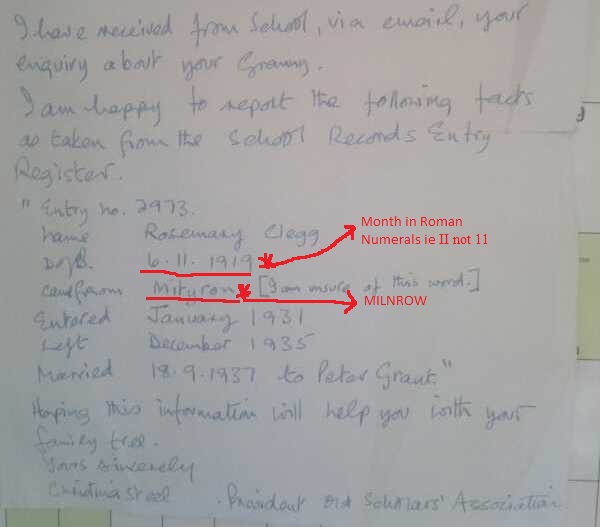 I have received from School, via email, your
enquiry about your Granny.
I am happy to report the following facts
as taken from the School Records Entry
Register.
" Entry no. 2973.
Name Rosemary Clegg
D/B. 6.11.1919
Month in Roman
Numerals ie II not 11
Came from Mityron [I am unsure of this word.]
MILNROW
Entered January 1931
Left December 1935
Married 18.9.1937 to Peter Grant."
Hoping this information will help you with your
family tree.
Yours sincerely
Christina Steel. President Old Scholars' Association